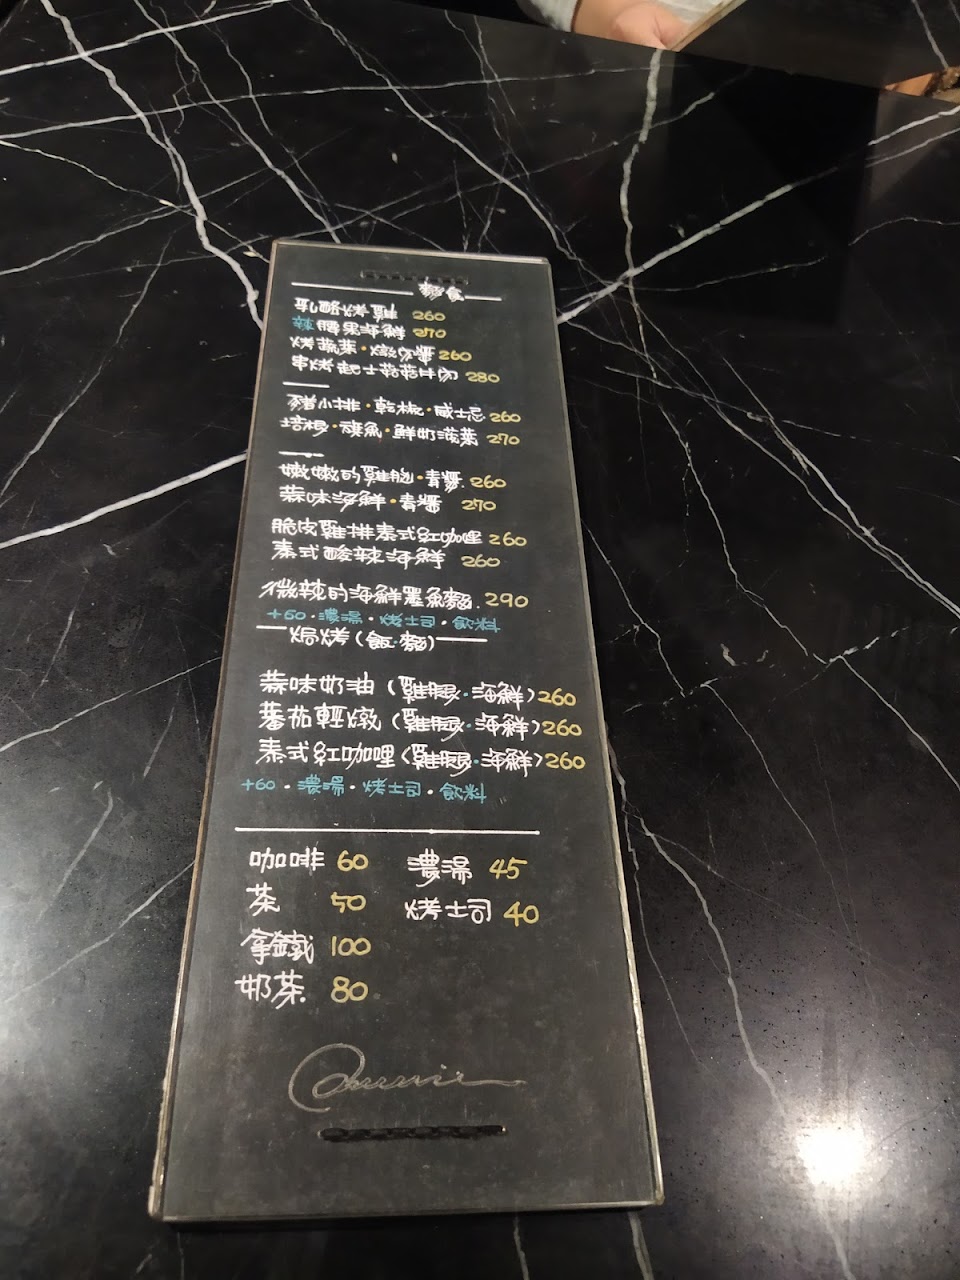 麵食
乳酪烤雞 260
辣腰果海鮮 270
烤蔬菜·燉肉醬 260
串烤起士菇菇牛肉 280
豬小排·乾椒·威士忌 260
培根·燻魚·鮮奶菠菜 270
嫩嫩的雞胸·青醬 260
蒜味海鮮·青醬 270
脆皮雞排泰式紅咖哩 260
泰式酸辣海鮮 260
微辣的海鮮墨魚麵 290
+60·濃湯·烤土司·飲料
焗烤(飯·麵)
蒜味奶油(雞腿·海鮮)260
蕃茄輕燉(雞腿·海鮮)260
泰式紅咖哩(雞腿·海鮮)260
+60·濃湯·烤土司·飲料
咖啡 60 濃湯 45
茶 50 烤土司 40
拿鐵 100
奶茶 80